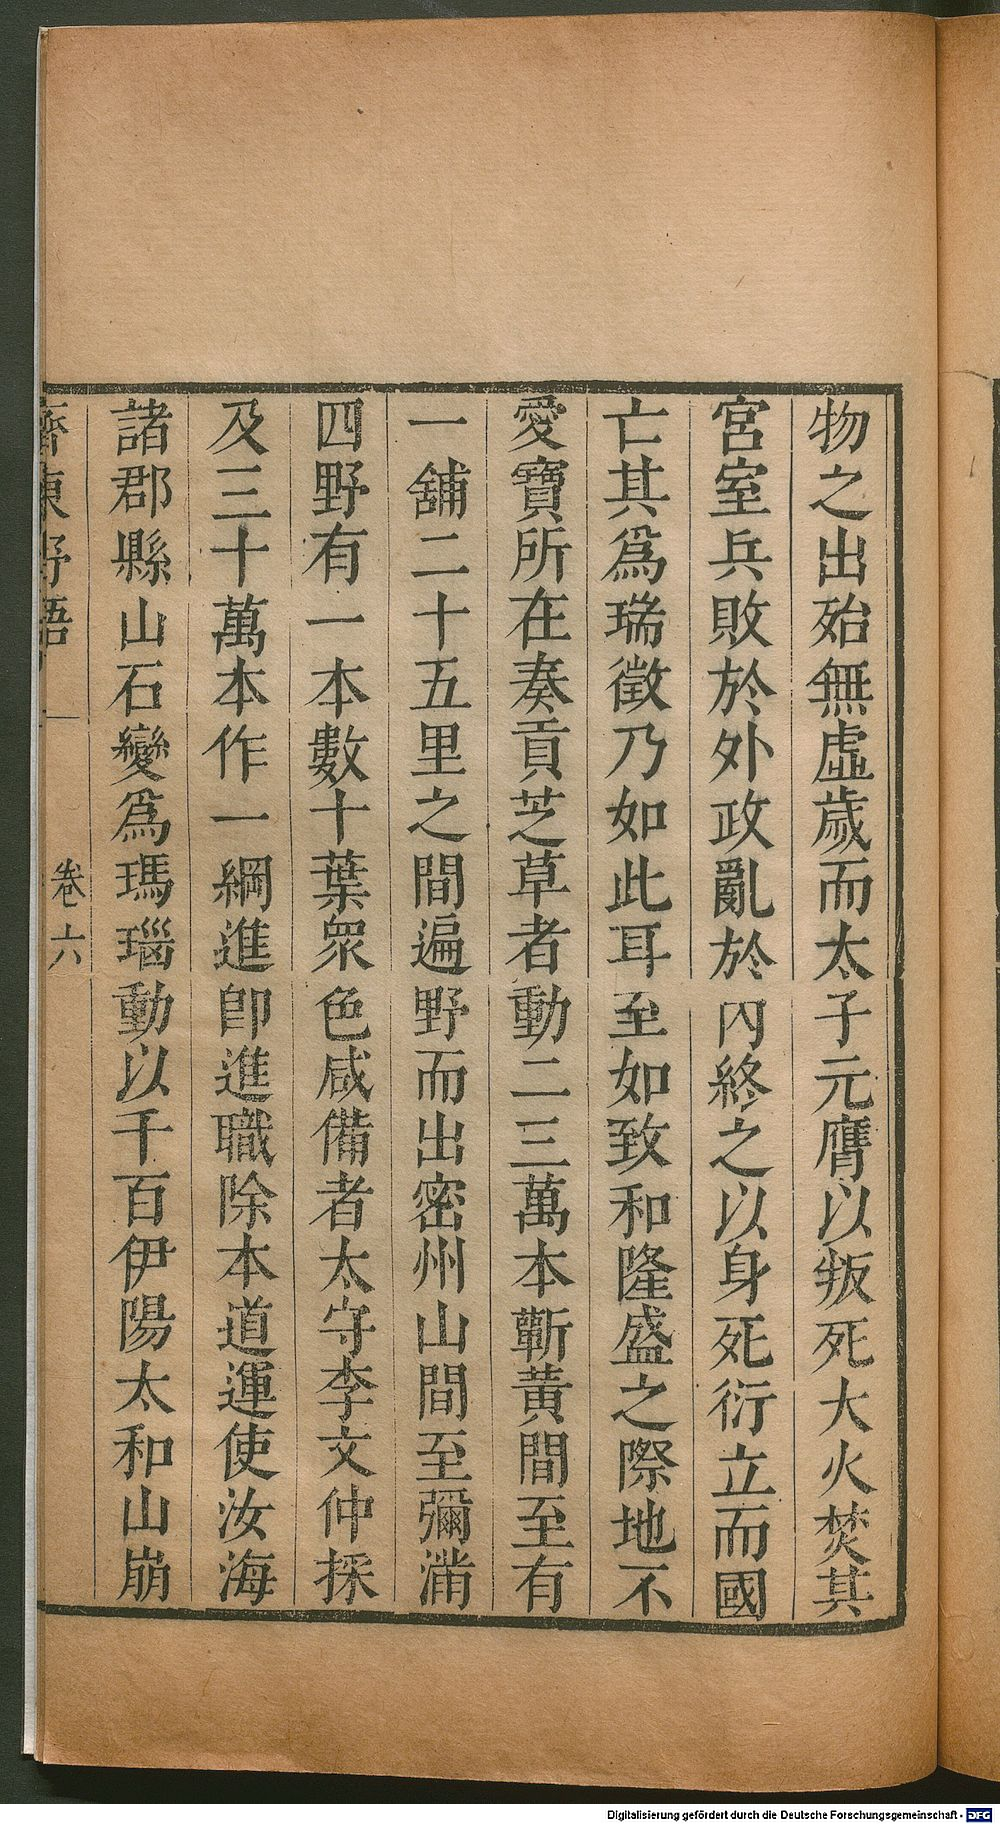 物之出殆無虛歲而太子元膺以叛死大火焚其
宮室兵敗於外政亂於內終之以身死衍立而國
亡其爲瑞徵乃如此耳至如致和隆盛之際地不
愛寶所在奏貢芝草者動二三萬本蘄黃間至有
一舖二十五里之間遍野而出密州山間至彌滿
四野有一本數十葉衆色咸備者太守李文仲採
及三十萬本作一綱進卽進職除本道運使汝海
諸郡縣山石變爲瑪瑙動以千百伊陽太和山崩
齊東野語 卷六
Digitalisierung gefördert durch die Deutsche Forschungsgemeinschaft - DFG